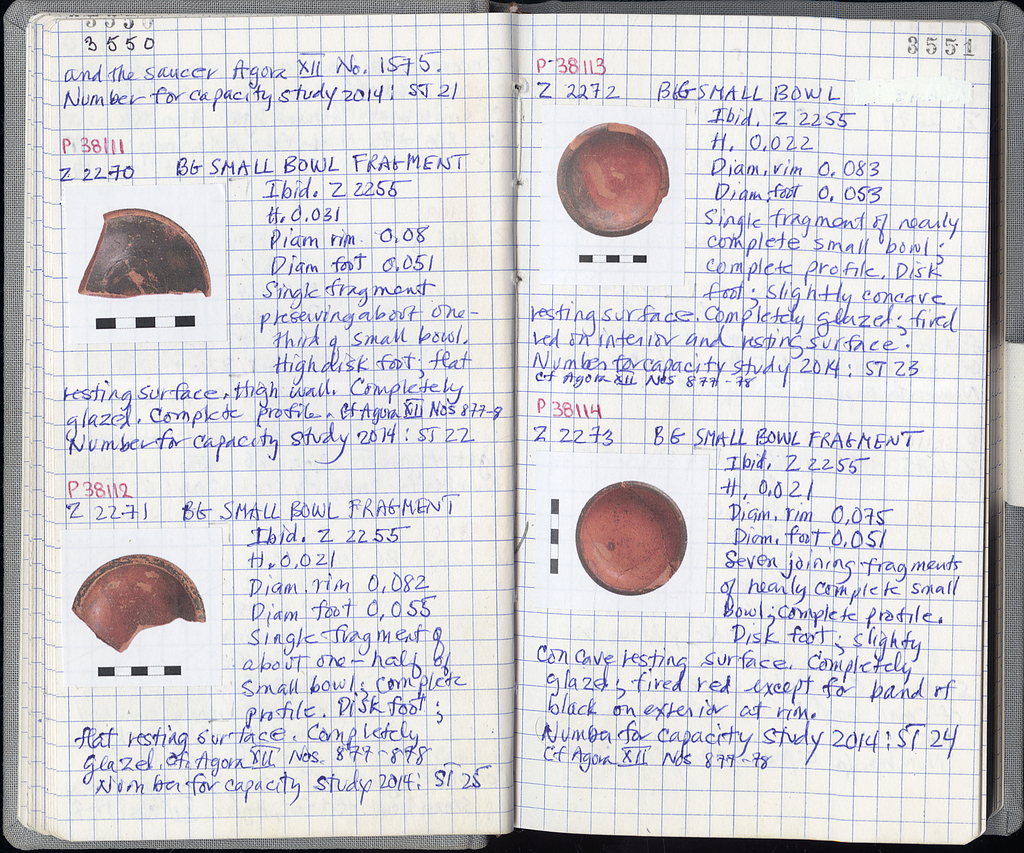 3550
3550
and the saucer Agora XII No. 1575.
Number for capacity study 2014: ST 21
P 38111
Z 2270 BG SMALL BOWL FRAGMENT
Ibid. Z 2255
H. 0.031
Diam rim 0,08
Diam foot 0,051
Single fragment
preserving about one-
third of small bowl.
High disk foot; flat
resting surface. High wall. Completely
glazed. Complete profile. Cf Agora XII Nos 877-8
Number for capacity study 2014: ST 22
P 38112
Z 2271 BG SMALL BOWL FRAGMENT
Ibid. Z 2255
H. 0,021
Diam. rim 0,082
Diam foot 0,055
Single fragment of
about one-half of
small bowl; complete
profile. Disk foot;
flat resting surface. Completely
glazed. Cf. Agora XII Nos. 877-878
Number for capacity study 2014: ST 25
3551
P-38113
Z 2272 BG SMALL BOWL
Ibid. Z 2255
H. 0,022
Diam. rim 0.083
Diam. foot 0.053
Single fragment of nearly
complete small bowl;
complete profile. Disk
foot; slightly concave
resting surface. Completely glazed; fired
red on interior and resting surface.
Number for capacity study 2014: ST 23
Cf Agora XII Nos 877-78
P 38114
Z 2273 BG SMALL BOWL FRAGMENT
Ibid. Z 2255
H. 0.021
Diam. rim 0,075
Diam. foot 0,051
Seven joining fragments
of nearly complete small
bowl; complete profile.
Disk foot; slighty
concave resting surface. Completely
glazed; fired red except for band of
black on exterior at rim.
Number for capacity study 2014: ST 24
Cf Agora XII Nos 877-78